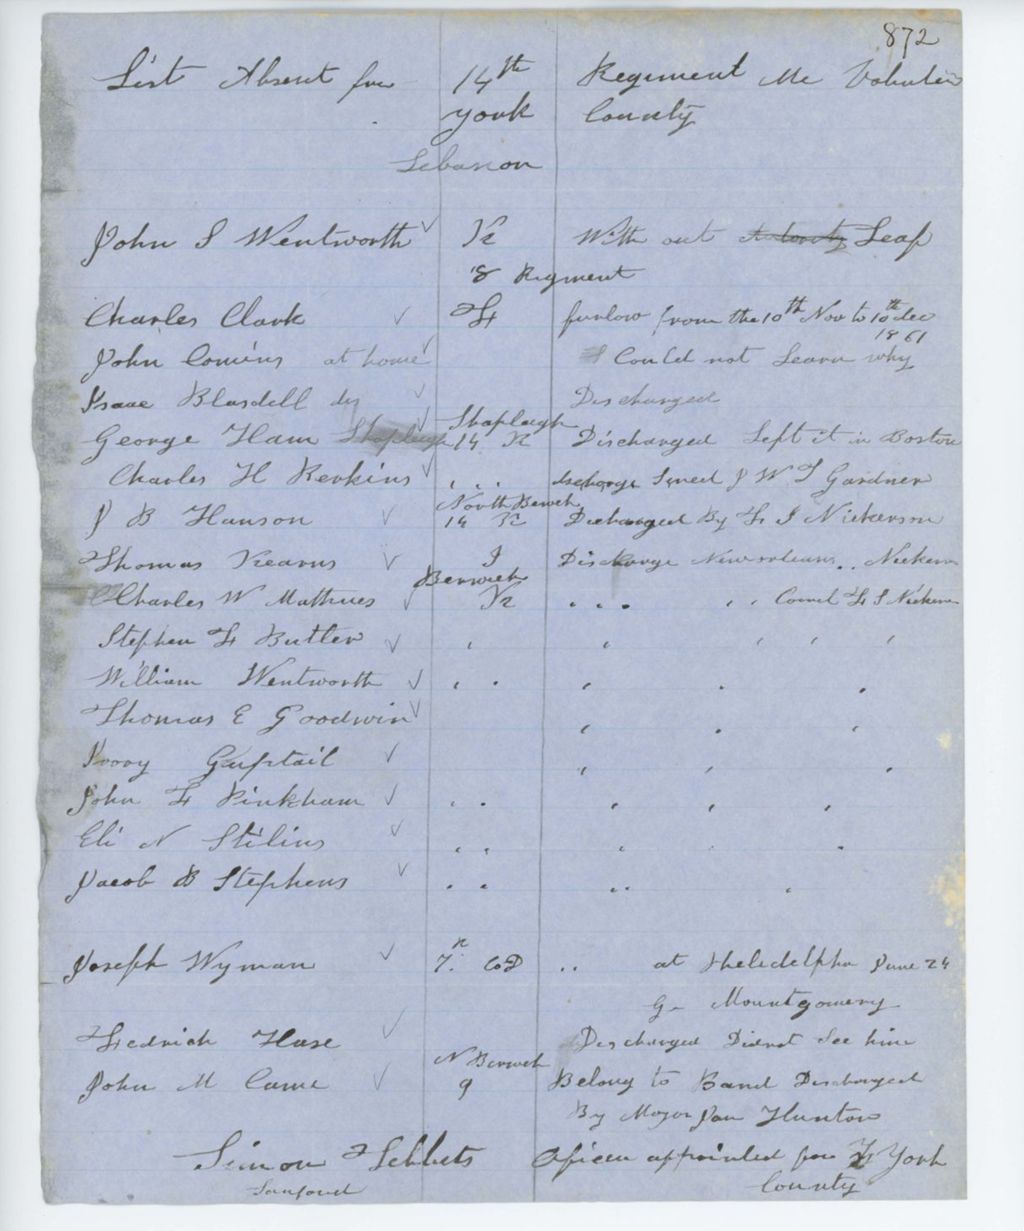 872
List Absent for 14th Regiment Me Volunteers
York County
Lebanon
John S Wentworth K With out Leaf
8 Regiment
Charles Clark F furlow from the 10th Nov to 10th dec
1861
John Comins at home I Could not Learn why
Isaac Blasdell do Discharged
Shapleagh
George Ham 14 K Discharged Left it in Boston
Charles H Perkins " " discharge Sined J W T Gardner
North Berwick
J B Hanson 14 K Discharged By F S Nickerson
Thomas Kearns I Discharge New orleans " Nickerson
Berwick
Charles W Mathues K " " " " Comd F S Nickerson
Stephen F Butler " " " " "
William Wentworth " " " " "
Thomas E Goodwin " " "
Ivory Guptail " " "
John F Pinkham " " " " "
Eli N Stilins " " " "
Jacob B Stephens " " " "
Joseph Wyman 7. Co D " at Pheledelpha June 24
G Mountgomery
Fedrick Huse Discharged Didnot See him
N Berwick
John M Came 9 Belong to Band Discharged
By Mayor Jon Hunton
Simon Tebbets Oficer appointed for York
Sanford County